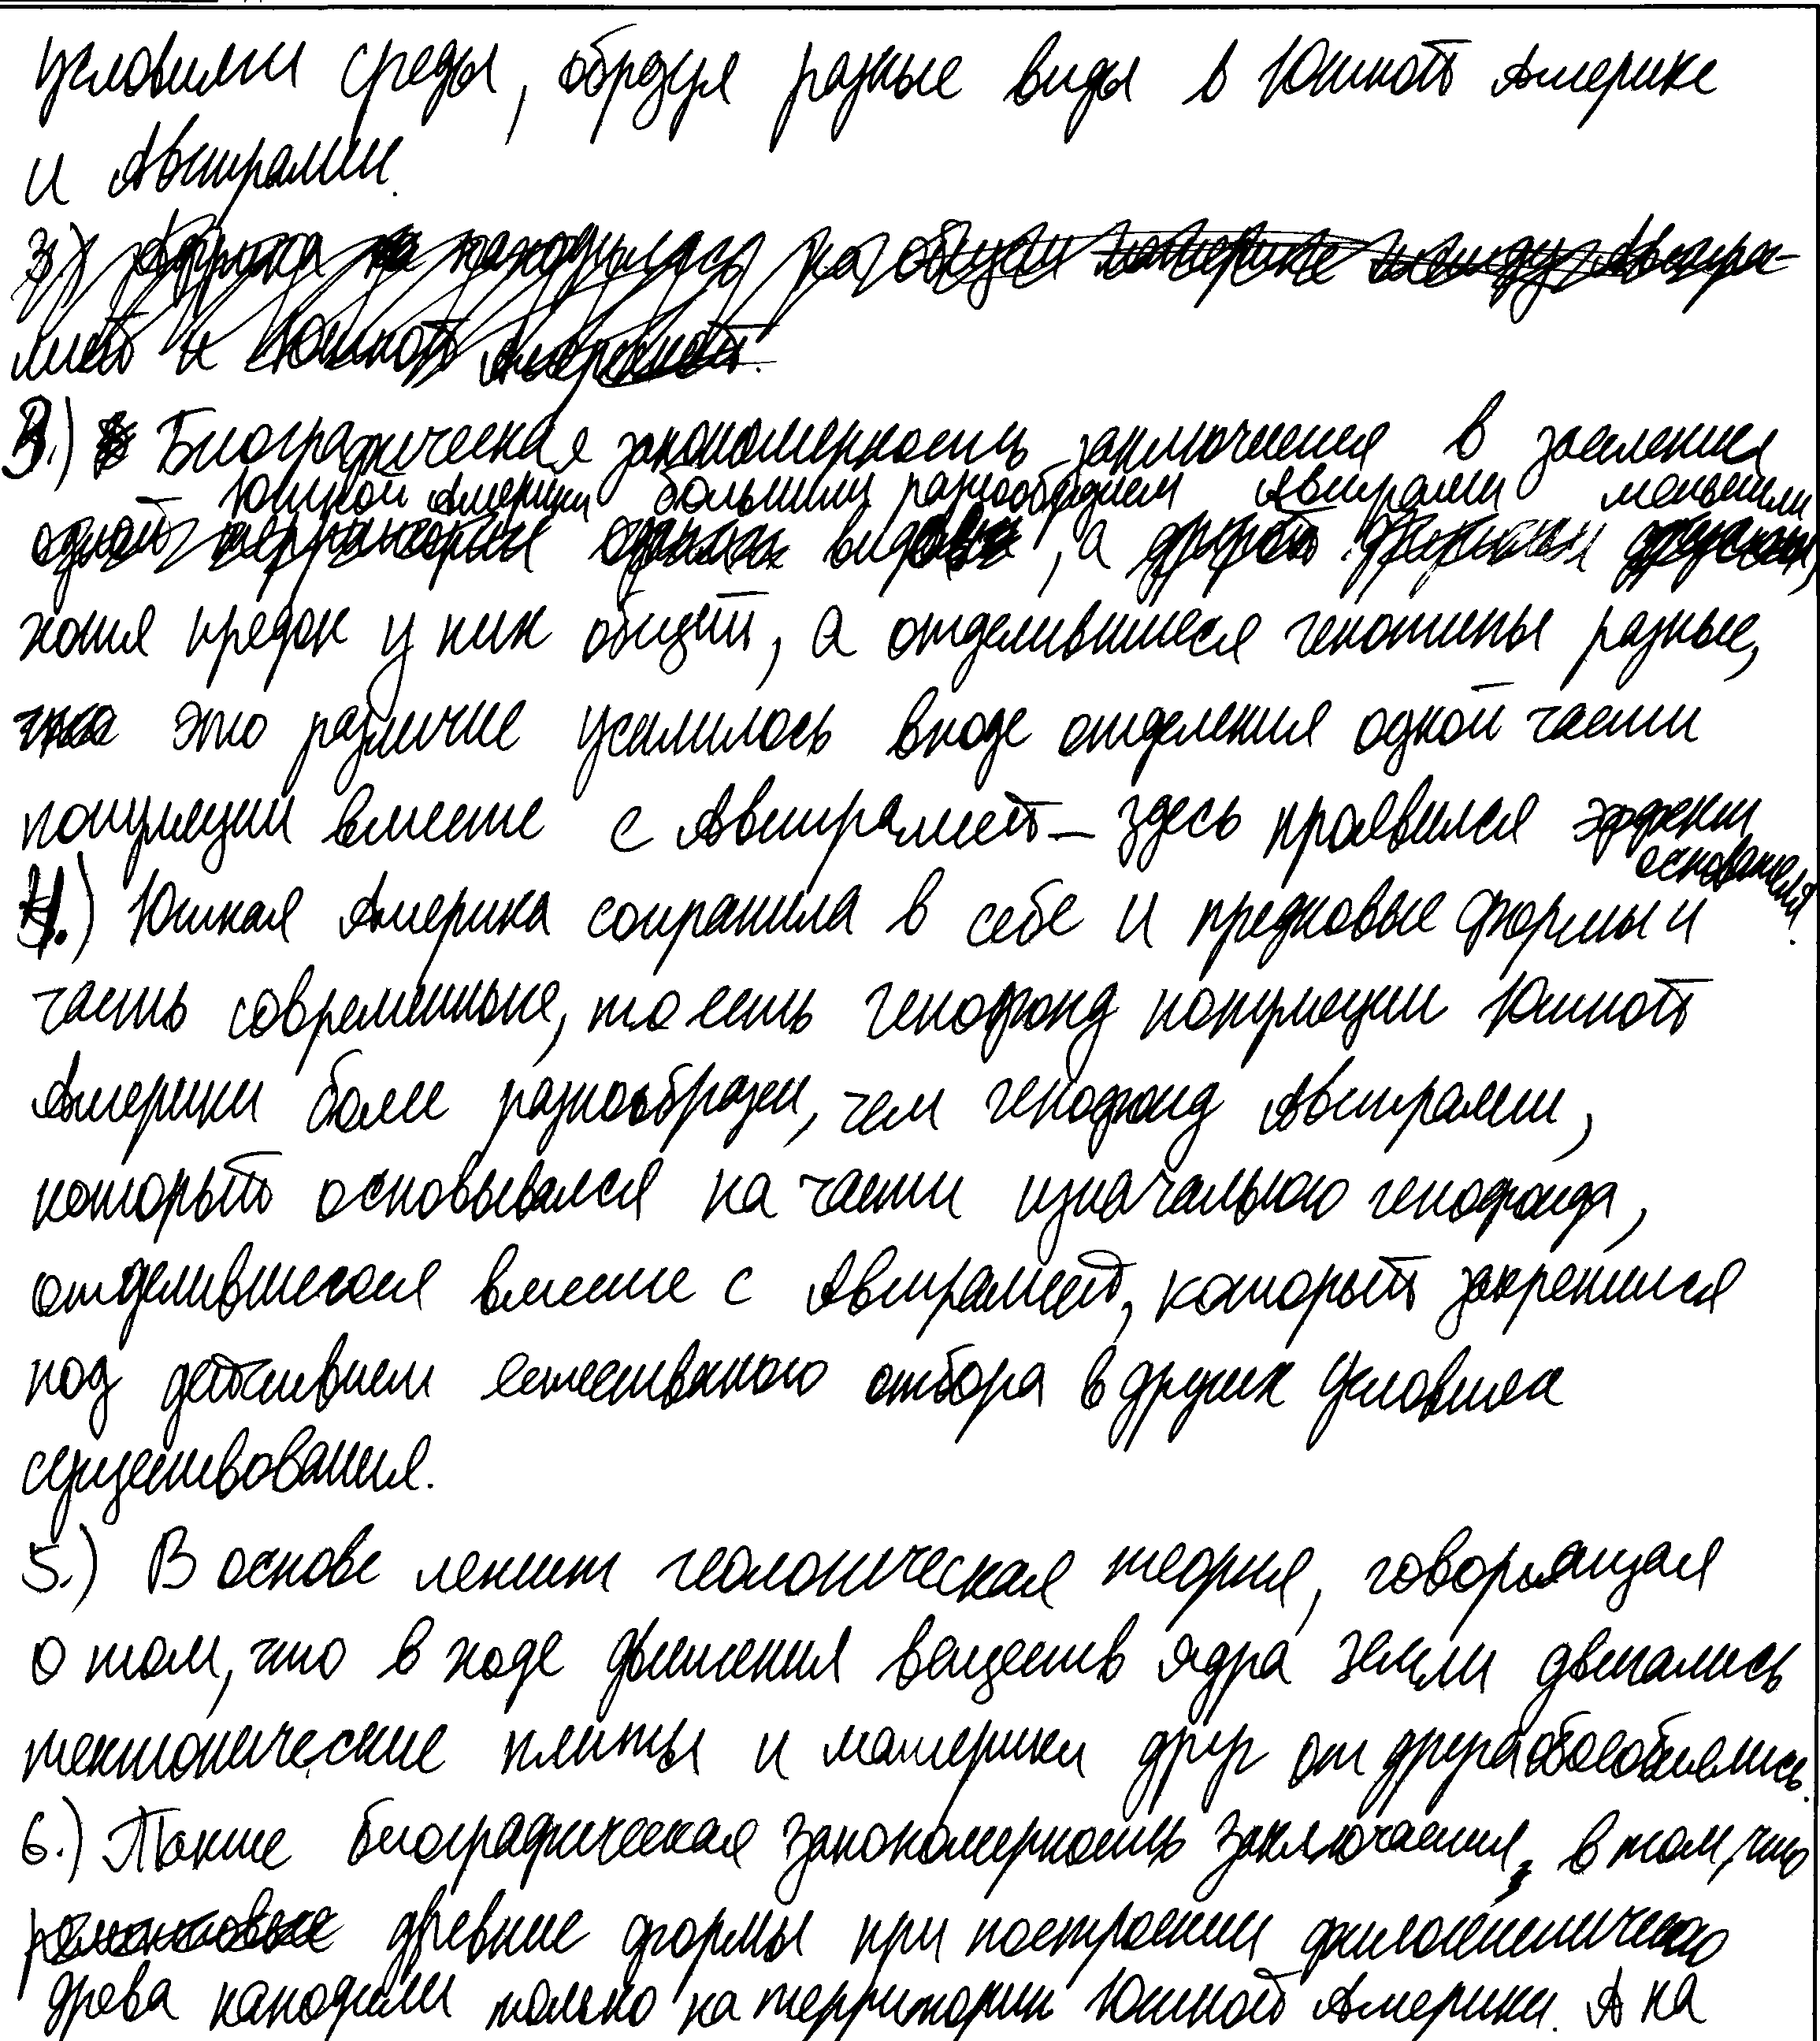 условиями среды, образуя разные виды в Южной Америке
и Австралии.
3.) Африка на находилась на общем материке между Австра-
лией и Южной Америкой.
3.) Биографическая закономерность заключается в заселении
Южной Америки большим разнообразием Австралии меньшим
одной территории видов, а другой
хотя предок у них общий, а отделившиеся генотипы разные,
это различие усилилось входе отделения одной части
популяции вместе с Австралией – здесь проявился эффект
основателя.
4.) Южная Америка сохранила в себе и предковые формы и
часть современных, то есть генофонд популяции Южной
Америки более разнообразен, чем генофонд Австралии,
который основывался на части изначального генофонда,
отделившегося вместе с Австралией, который закрепился
под действием естественного отбора в других условиях
существования.
5.) В основе лежит геологическая теория, говорящая
о том, что в ходе движения веществ ядра Земли двигались
тектонические плиты и материки друг от друга обособились.
6.) Также биографическая закономерность заключается, в том, что
древние формы при построении филогенетического
древа находили только на территории Южной Америки. А на